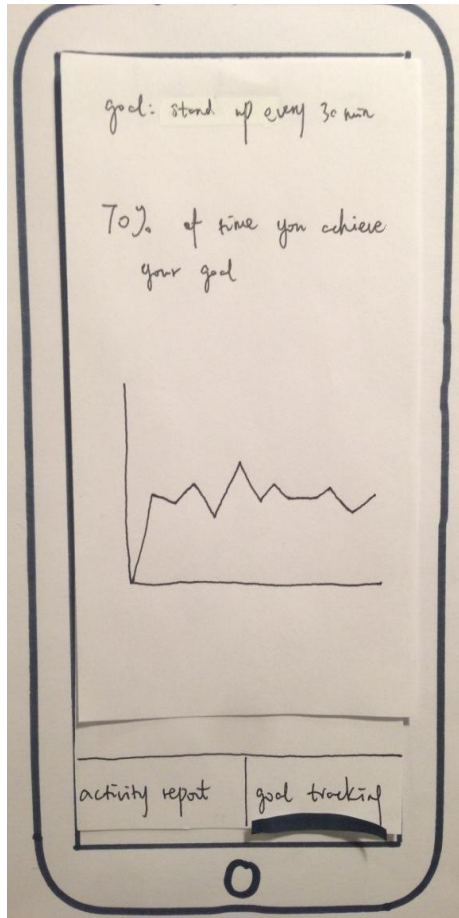 goal: stand up every 30 min
70% of time you achieve
your goal
activity report
goal tracking